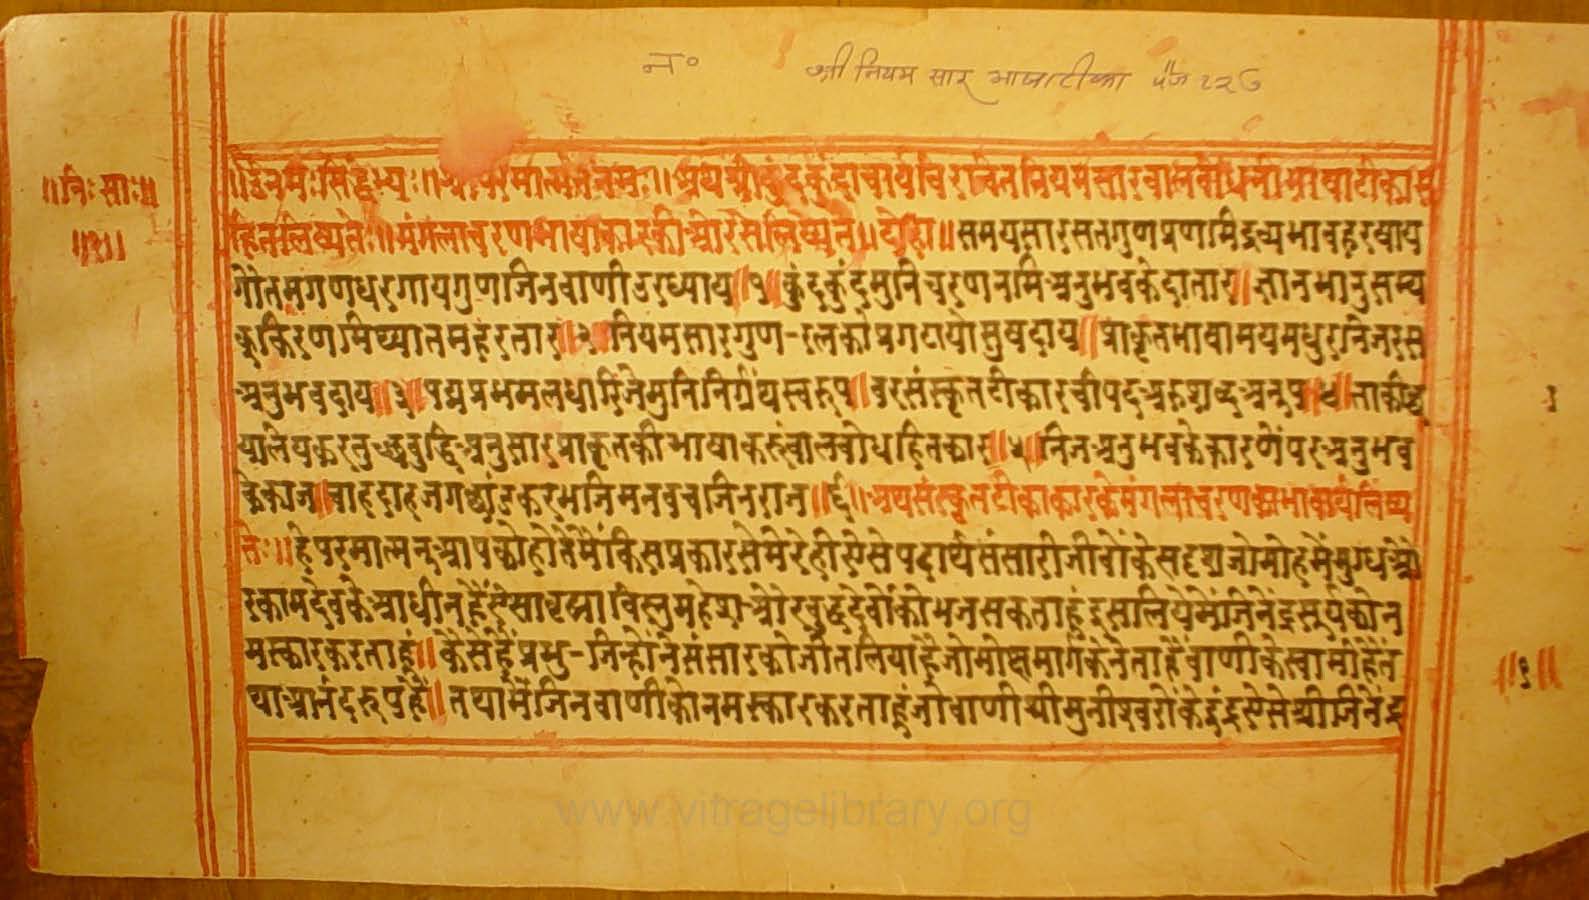 नं०
श्री नियम सार भाषाटीका पेज १२७
॥निःसाः॥
॥१॥
॥उँनमःसिद्धेभ्यः॥ ॥अथश्रीकुंदकुंदाचार्यविरचितनियमसारबालबोधनीभाषाटीकास
हितलिख्यतेः॥मंगलाचरणभाषाकारकीओरसेलिख्यते॥दोहा॥समयसारसतगुणप्रणमिद्रव्यभावहरषाय
गौतमगणधरगायगुणजिनवाणीउरध्याय॥१॥कुंदकुंदमुनिचरणनमिअनुभवकेदातार॥ज्ञानभानुसम्य
ककिरणमिथ्यातमहरतार॥२॥नियमसारगुण-रत्नकोप्रगटायोसुषदाय॥प्राकृतभाषामयमधुरनिजरस
अनुभवदाय॥३॥पद्मप्रभमलधारिजेमुनिनिर्ग्रंथस्वरुप॥वरसंस्कृतटीकारचीपदअरुशब्दअनूप॥४॥ताकी
यालियकरतुछबुद्धिअनुसारप्राकृतकीभाषाकरुंबालबोधहितकार॥५॥निजअनुभवकेकारणेंपरअनुभव
केकाज॥ जिनराज॥६॥अथसंस्कृतटीकाकारकेमंगलाचरणकाभावार्थलिष्य
तेः॥हेपरमात्मनआपकेहोतेंमैंकिसप्रकारसेमेरेहीऐसेपदार्थसंसारीजीवोंकेसदृशजोमोहमेंमुग्धऔ
रकामदेवकेआधीनहैंऐसाब्रह्माविस्नुमहेशऔरबुद्धदेवोंकोभजसकताहूंइसलियेमेंजिनेंद्रसूर्यकोन
मस्कारकरताहूं॥कैसेहैंप्रभु-जिन्होंनेसंसारकोजीतलियाहैजोमोक्षमार्गकेनेताहैंवाणीकेस्वामीहैंत
थाआनंदरुपहैं॥तथामेंजिनवाणीकोनमस्कारकरताहूंजोवाणीश्रीमुनीश्वरोंकेइंद्रऐसेश्रीजिनेंद्र
॥१॥
www.vitragelibrary.org